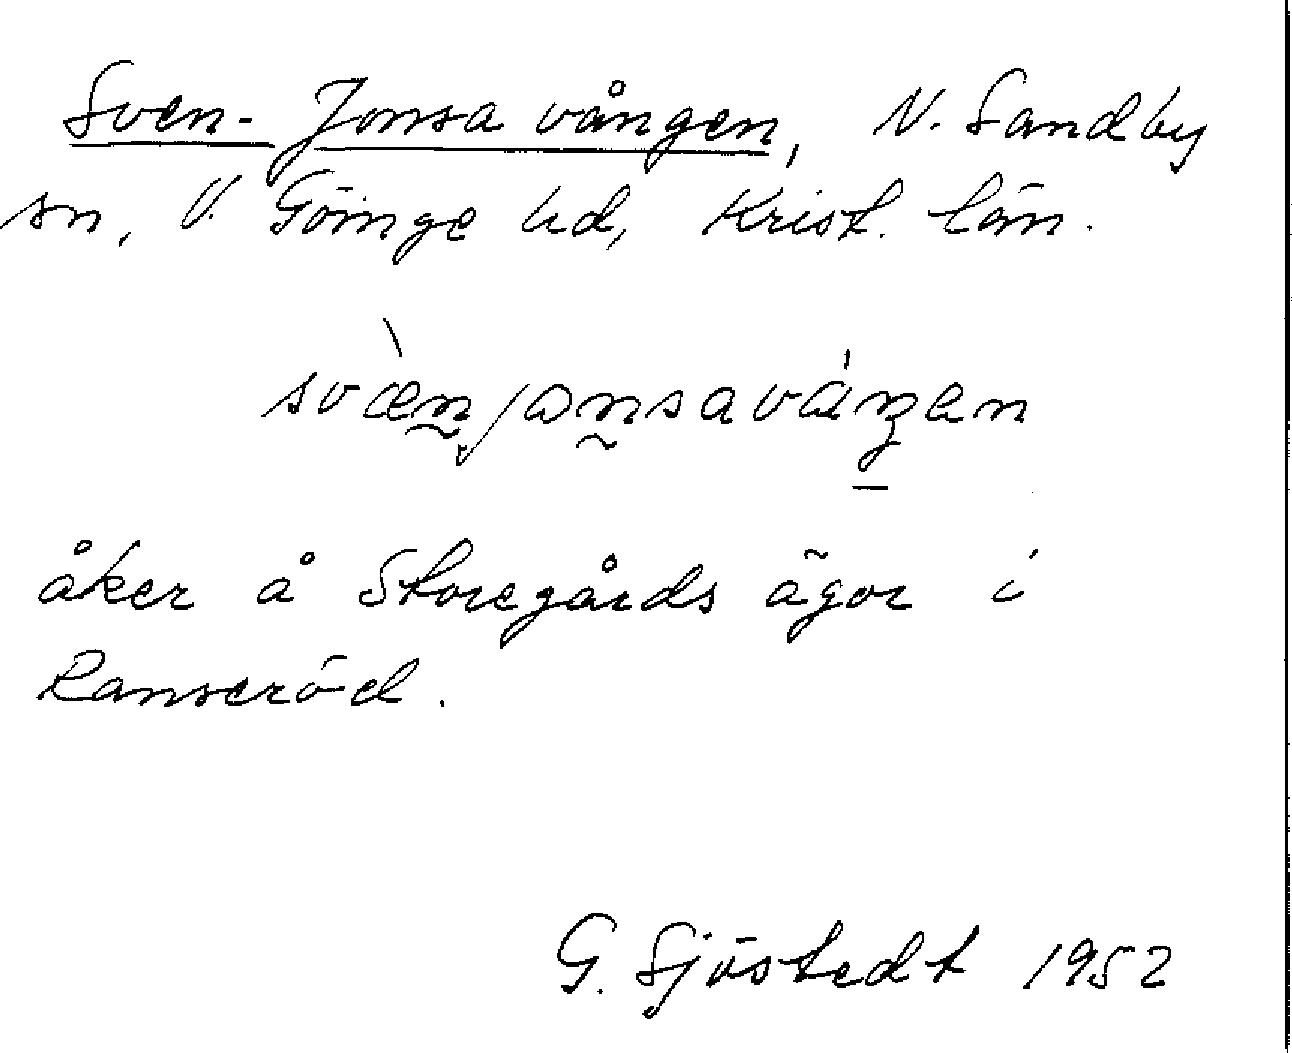 Sven-Jonsa vången, N. Sandby
sn, V. Göinge hd, Krist. län.
svæ̀njɷnsaváŋen
åker å Storegårds ägor i
Ranseröd.
G. Sjöstedt 1952